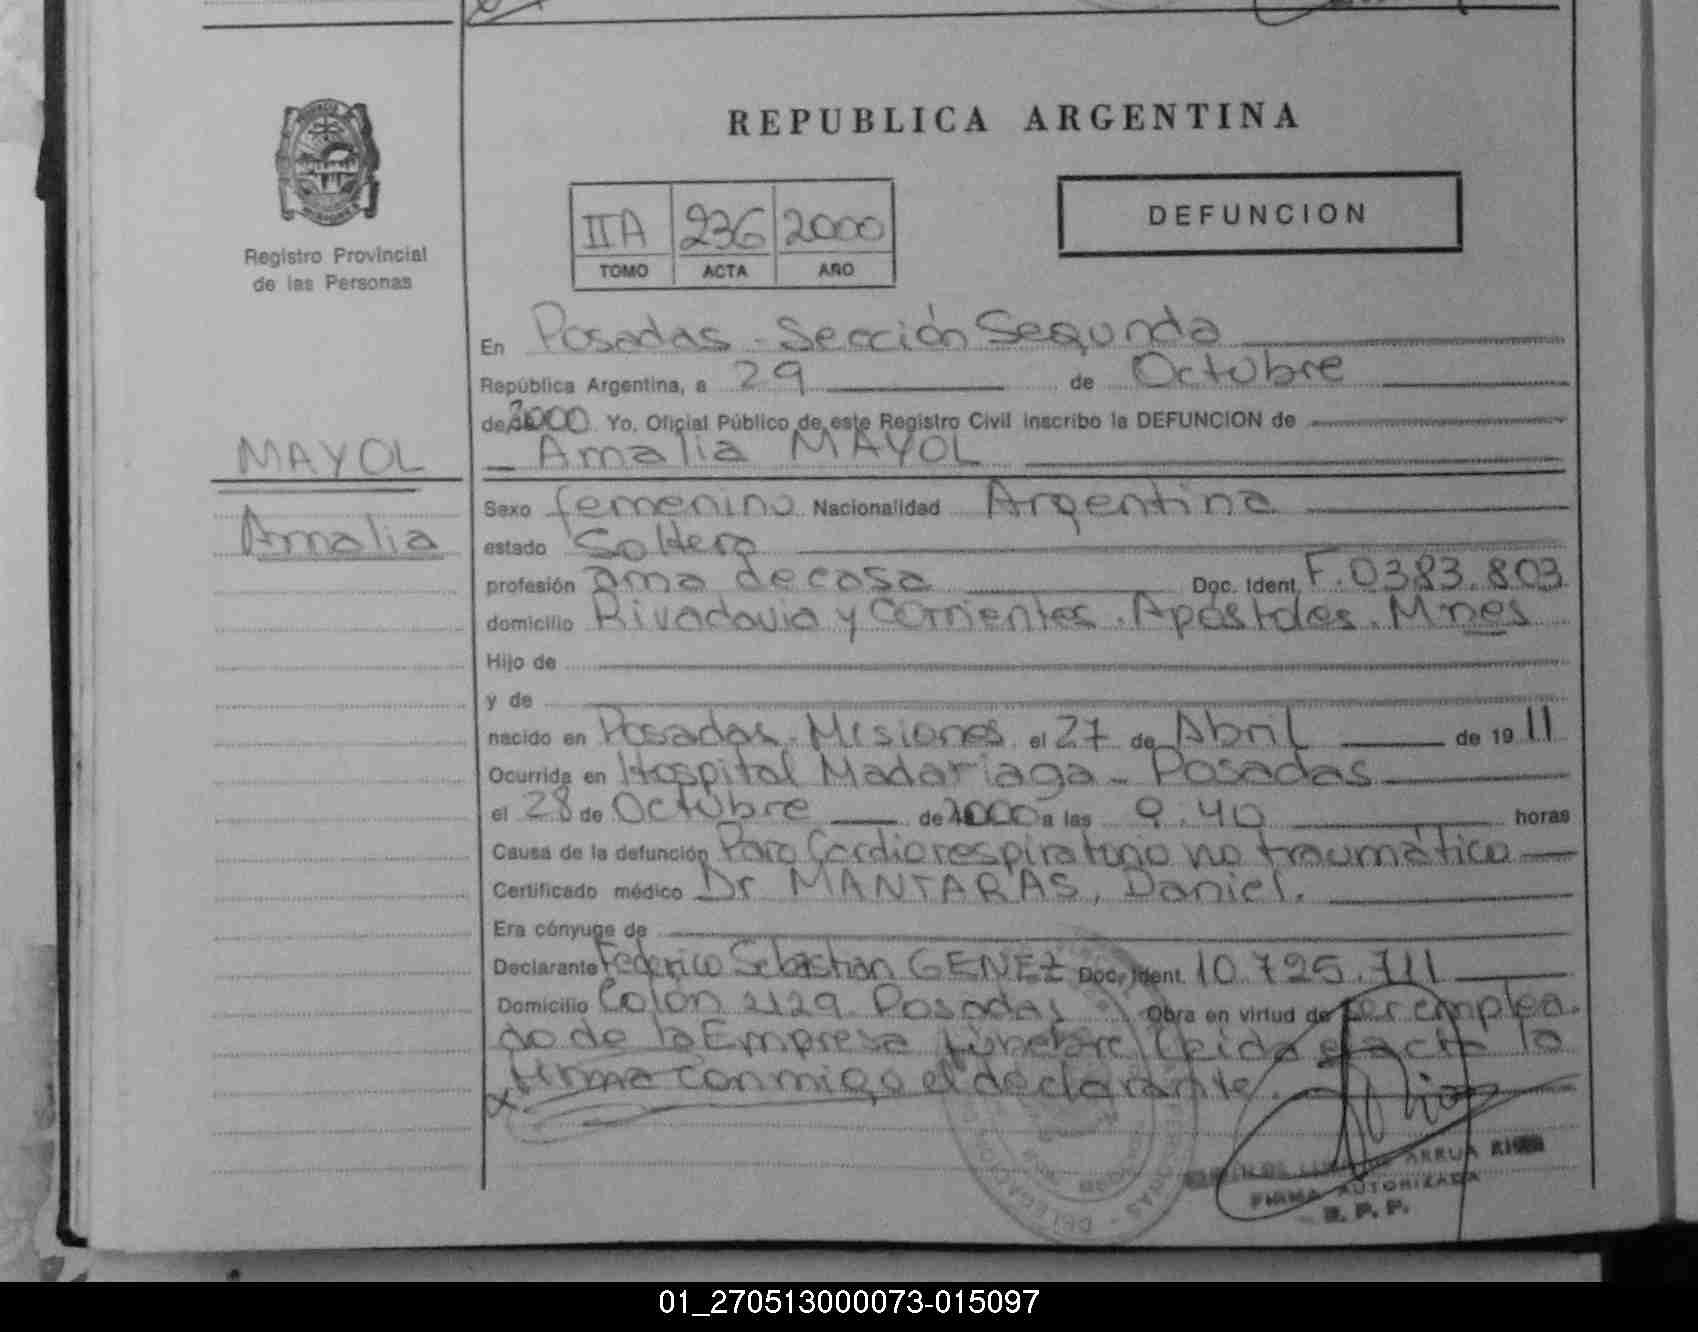 REPUBLICA ARGENTINA
Registro Provincial
de las Personas
IIA 236 2000
TOMO ACTA AÑO
DEFUNCION
En Posadas - Sección Segunda
República Argentina, a 29 de Octubre
de 2000 Yo, Oficial Público de este Registro Civil inscribo la DEFUNCION de
Amalia MAYOL
MAYOL
Amalia
Sexo femenino Nacionalidad Argentina
estado Soltera
profesión Ama de casa Doc. Ident. F.0383.803
domicilio Rivadavia y Corrientes. Apóstoles. Mnes
Hijo de
y de
nacido en Posadas. Misiones el 27 de Abril de 19 11
Ocurrida en Hospital Madariaga - Posadas
el 28 de Octubre de 2000 a las 9.40 horas
Causa de la defunción Paro Cardiorespiratorio no traumático
Certificado médico Dr MANTARAS, Daniel.
Era cónyuge de
Declarante Federico Sebastian GENEZ Doc. Ident. 10.725.711
Domicilio Colón 2129 Posadas Obra en virtud de ser emplea-
do de la Empresa fúnebre leida el acta la
firma conmigo el declarante.
ARRUA
FIRMA AUTORIZADA
R. P. P.
01_270513000073-015097